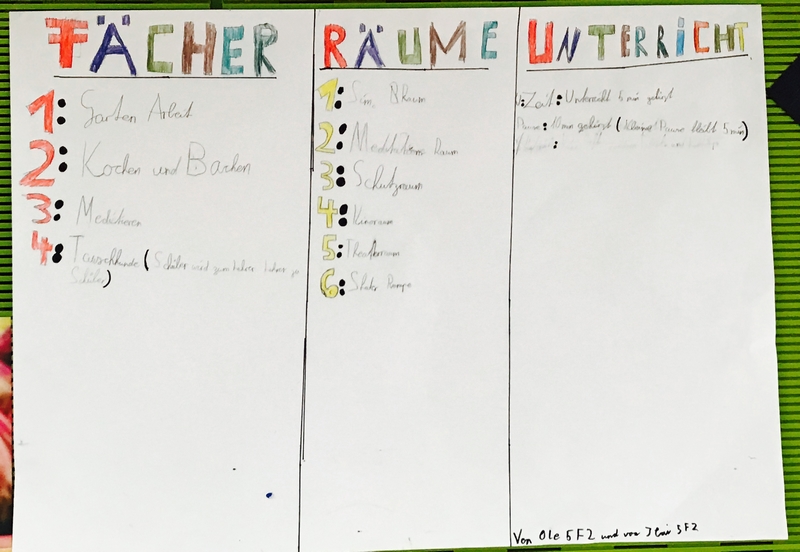 FÄCHER
1: Garten Arbeit
2: Kochen und Backen
3: Medicheren
4: Tauschkunde (Schüler wird zum Lehrer Lehrer
Schüler)
RÄUME
1: Raum
2: Meditations Raum
3: Schutzraum
4: Kinoraum
5: Theaterraum
6: Skater Rampe
UNTERRICHT
1: Zeit: Unterricht 5 min gekürzt
Pause: 10 min gekürzt (kleine Pause bleibt 5 min)
:
Von Ole 5F2 und von 5F2